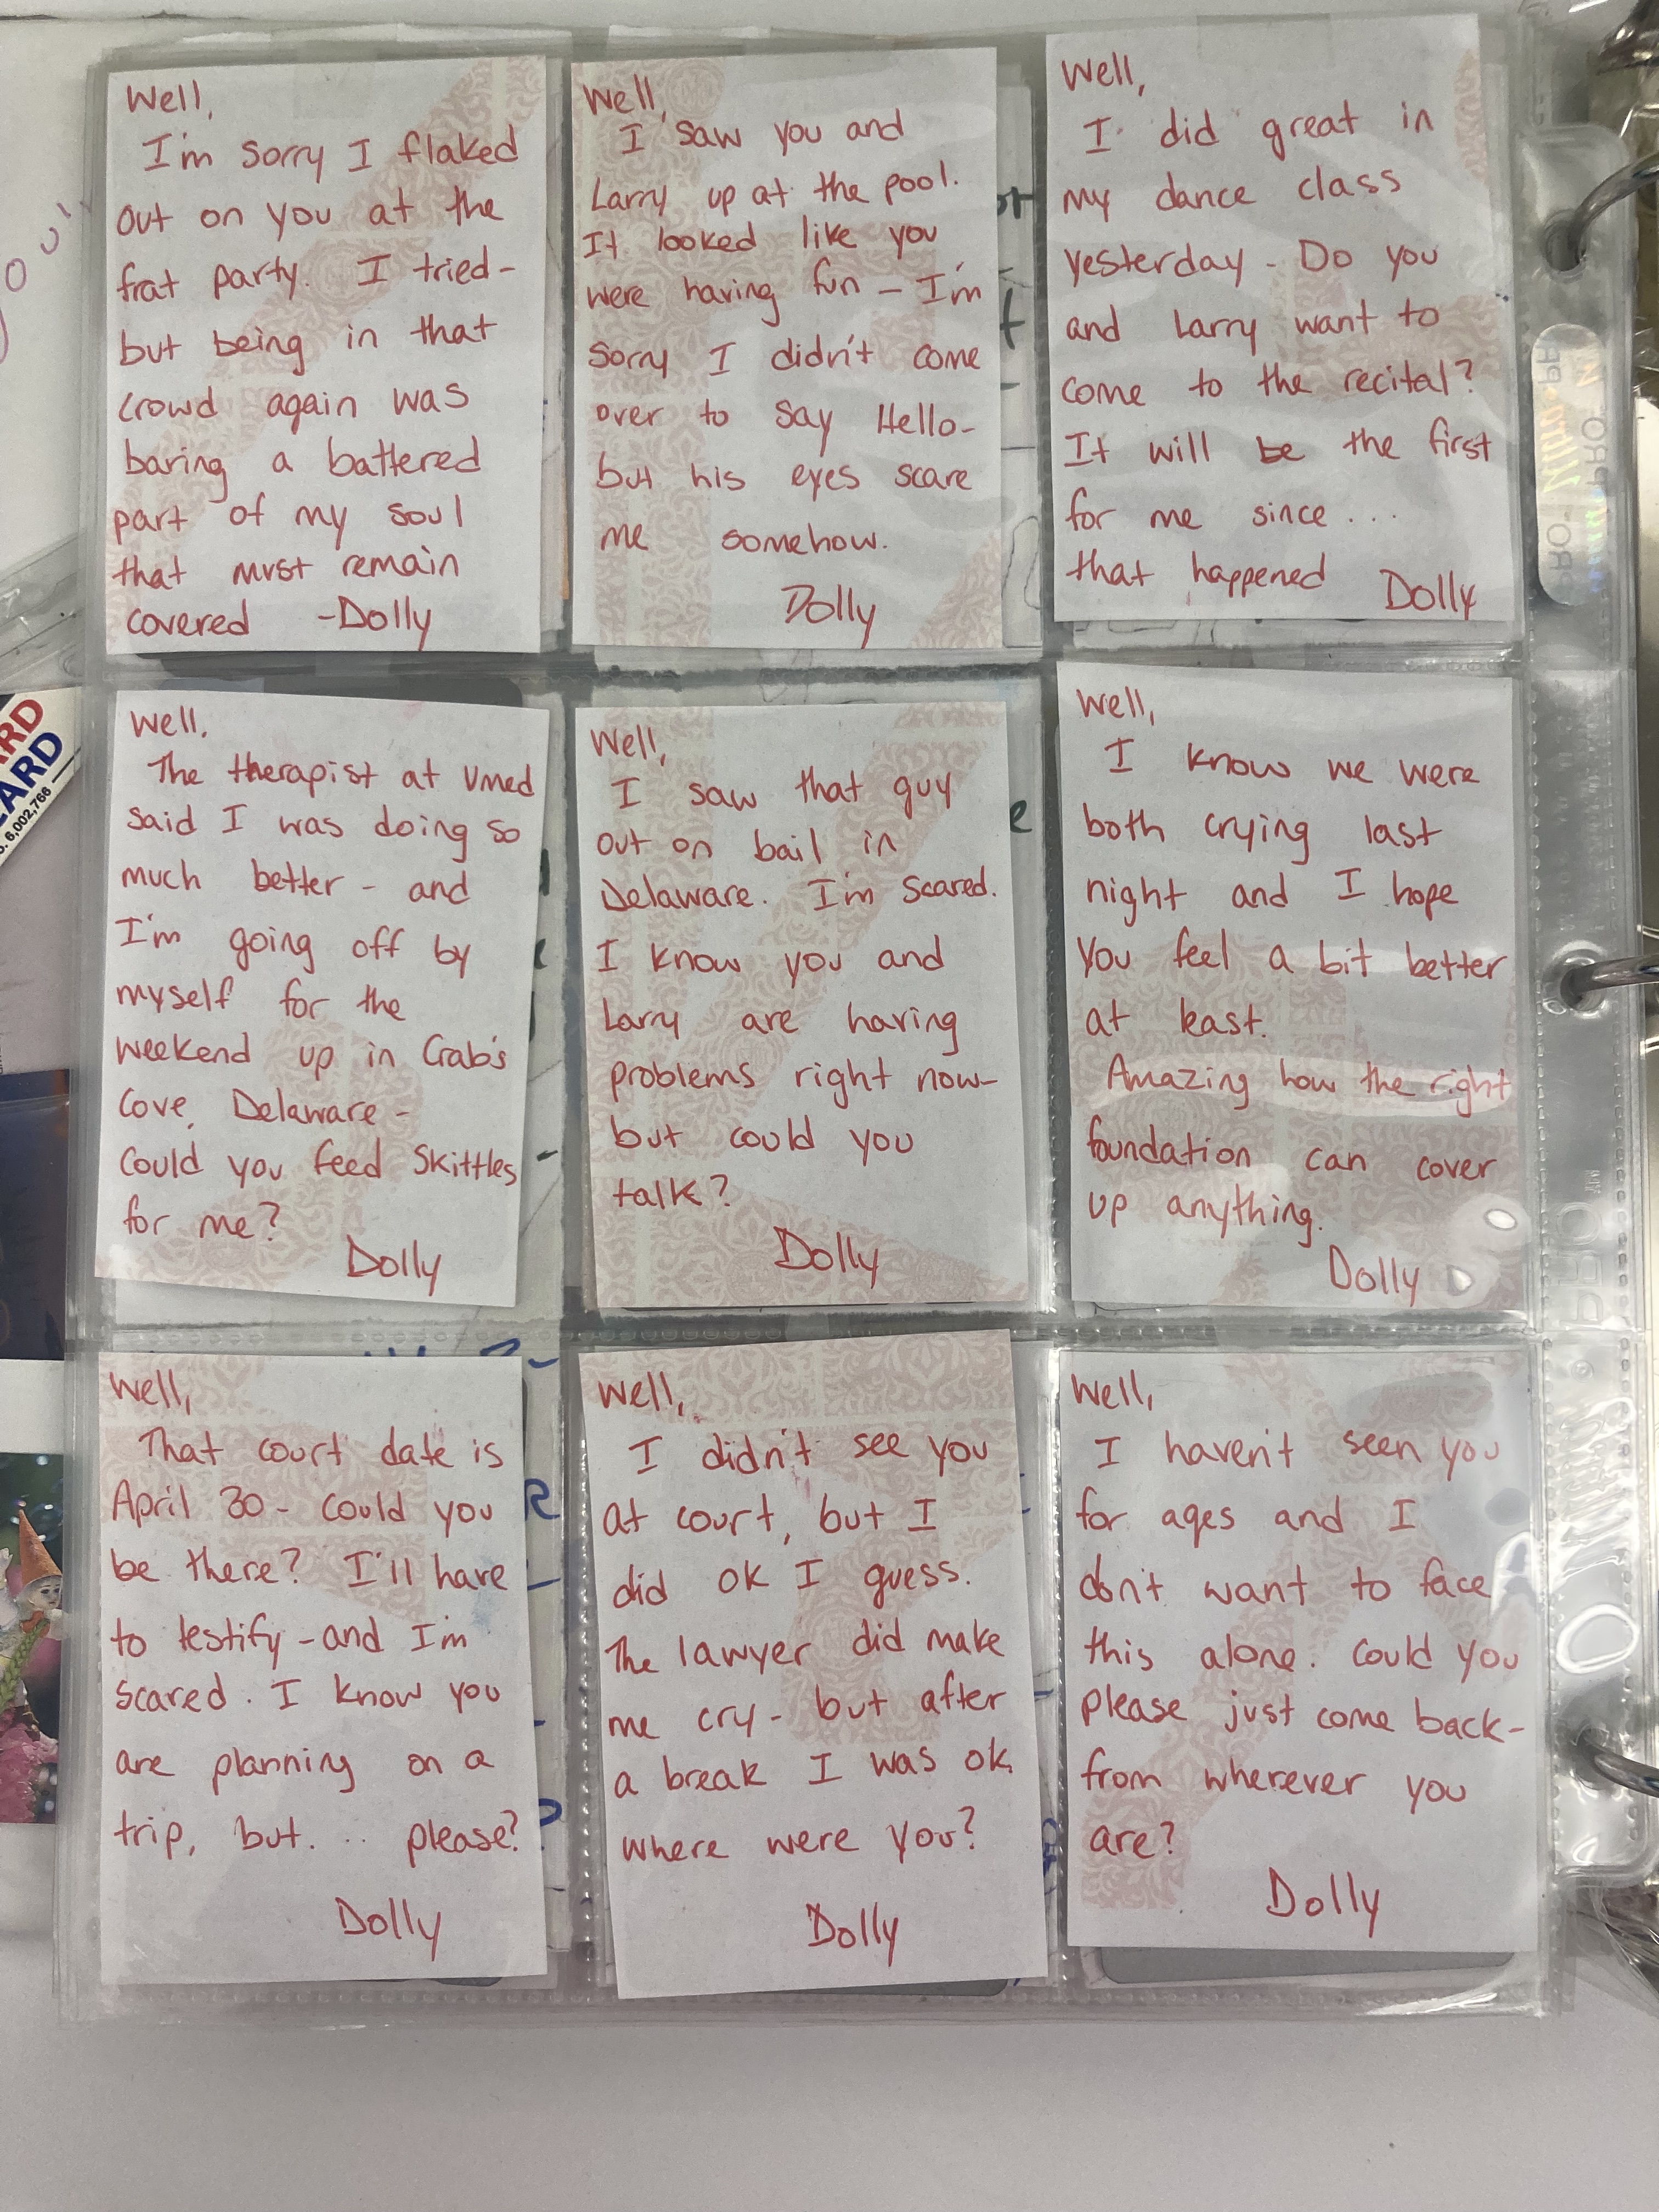 Well,
I'm sorry I flaked
out on you at the
frat party. I tried-
but being in that
crowd again was
baring a battered
part of my soul
that must remain
covered -Dolly
Well,
I saw you and
Larry up at the pool.
It looked like you
were having fun - I'm
sorry I didn't come
over to say Hello-
but his eyes scare
me somehow.
Dolly
Well,
I did great in
my dance class
yesterday - Do you
and Larry want to
come to the recital?
It will be the first
for me since...
that happened Dolly
Well,
The therapist at Umed
said I was doing so
much better - and
I'm going off by
myself for the
weekend up in Crab's
Cove, Delaware -
Could you feed Skittles
for me?
Dolly
Well,
I saw that guy
out on bail in
Delaware. I'm scared.
I know you and
Larry are having
problems right now-
but could you
talk?
Dolly
Well,
I know we were
both crying last
night and I hope
you feel a bit better
at least.
Amazing how the right
foundation can cover
up anything.
Dolly
Well,
That court date is
April 30 - could you
be there? I'll have
to testify - and I'm
scared. I know you
are planning on a
trip, but... please?
Dolly
Well,
I didn't see you
at court, but I
did ok I guess.
The lawyer did make
me cry - but after
a break I was ok.
Where were you?
Dolly
Well,
I haven't seen you
for ages and I
don't want to face
this alone. Could you
please just come back-
from wherever you
are?
Dolly
ARD
6,002,766